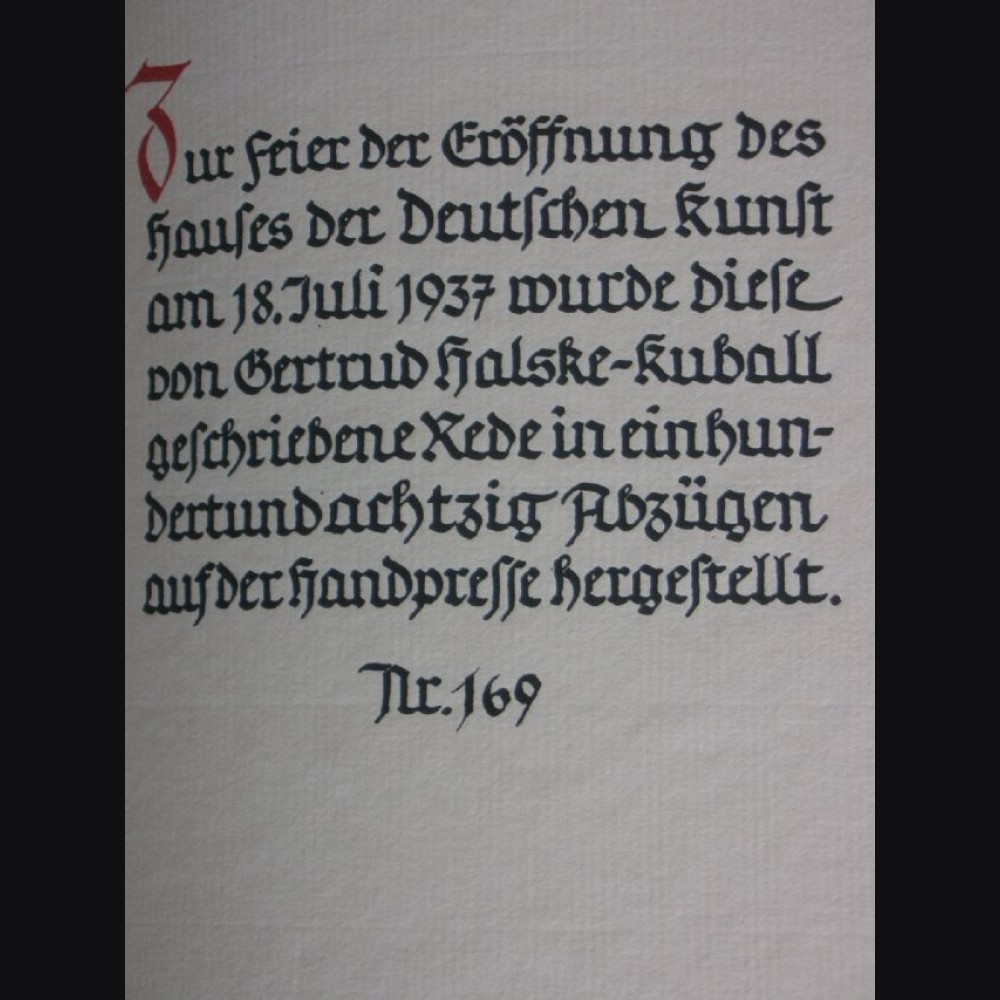 Zur Feier der Eröffnung des
Hauses der Deutschen Kunst
am 18. Juli 1937 wurde diese
von Gertrud Halske-Kuball
geschriebene Rede in einhun-
dertundachtzig Abzügen
auf der Handpresse hergestellt.
Nr. 169